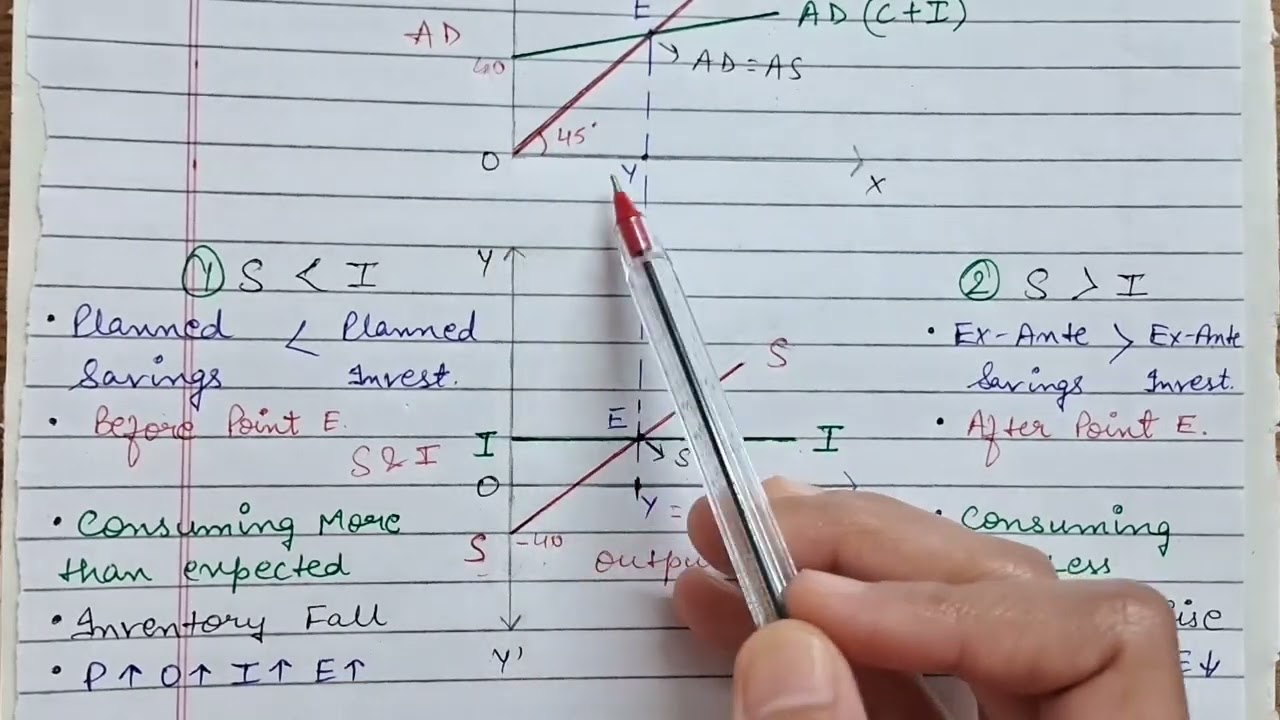 E
AD (C+I)
AD
40
AD = AS
45°
O
Y
X
① S < I
Planned Savings < Planned Invest.
• Before Point E.
• Consuming More
than expected
• Inventory Fall
• P↑ O↑ I↑ E↑
Y
S
E
I
I
S & I
S
O
Y =
S
-40
Outpu
Y'
② S > I
• Ex-Ante Savings > Ex-Ante Invest.
• After Point E.
• Consuming
Less
ise
E↓